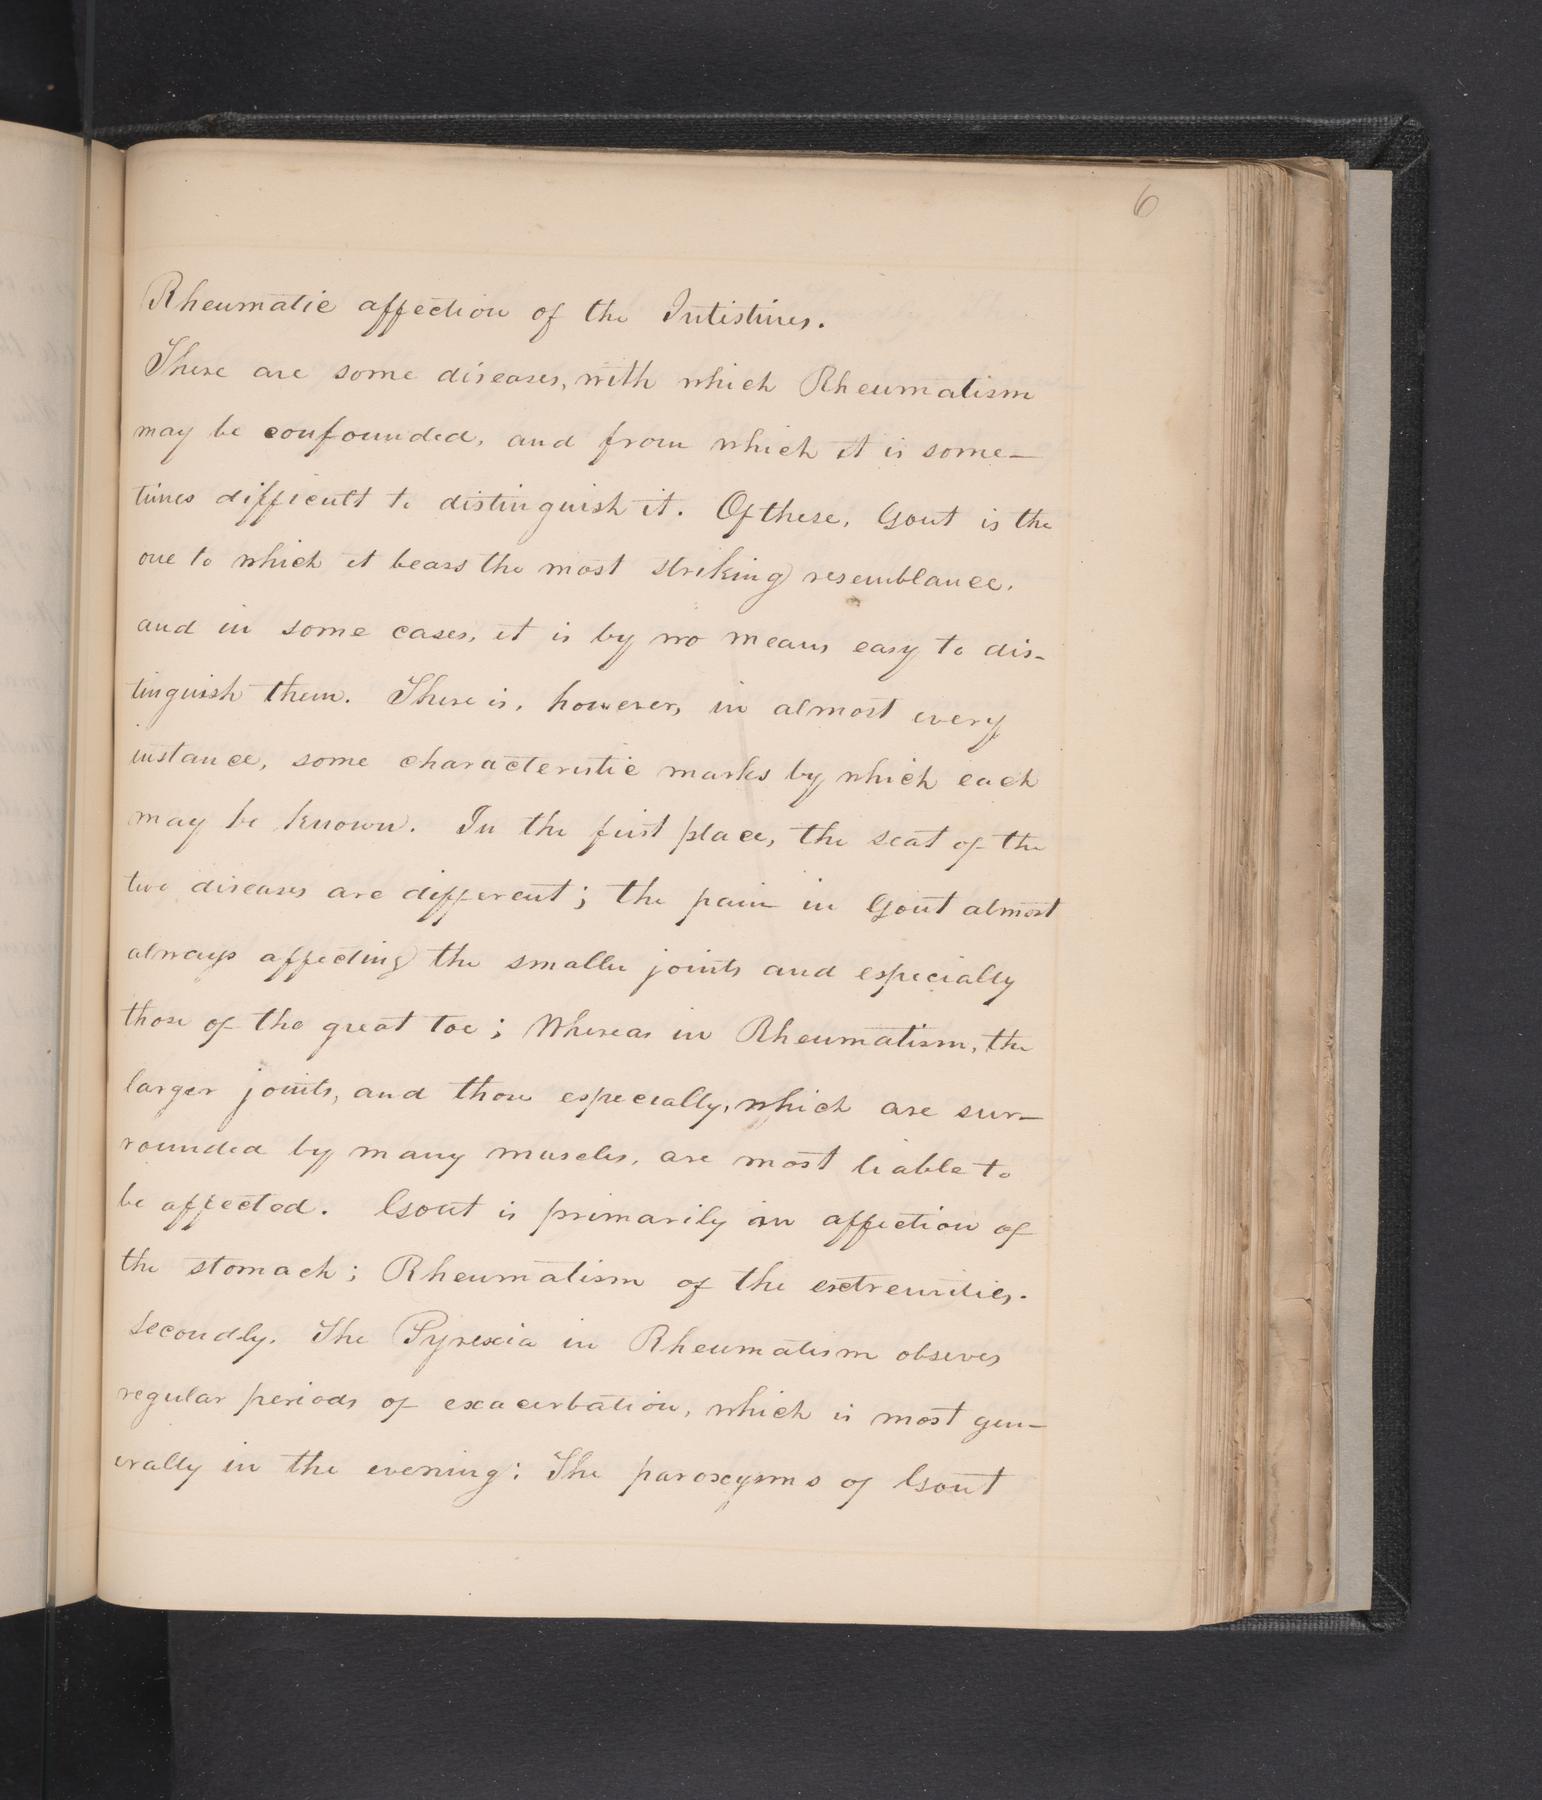 6
Rheumatic affection of the Intistines.
There are some diseases, with which Rheumatism
may be confounded, and from which it is some-
times difficult to distinguish it. Of these, Gout is the
one to which it bears the most striking resemblance,
and in some cases, it is by no means easy to dis-
tinguish them. There is, however, in almost every
instance, some characteristic marks by which each
may be known. In the first place, the seat of the
two diseases are different; the pain in Gout almost
always affecting the smaller joints and especially
those of the great toe; Whereas in Rheumatism, the
larger joints, and those especially, which are sur-
rounded by many muscles, are most liable to
be affected. Gout is primarily an affection of
the stomach; Rheumatism of the extremities.
Secondly. The Pyrexia in Rheumatism observes
regular periods of exacerbation, which is most gen-
erally in the evening: The paroxysms of Gout